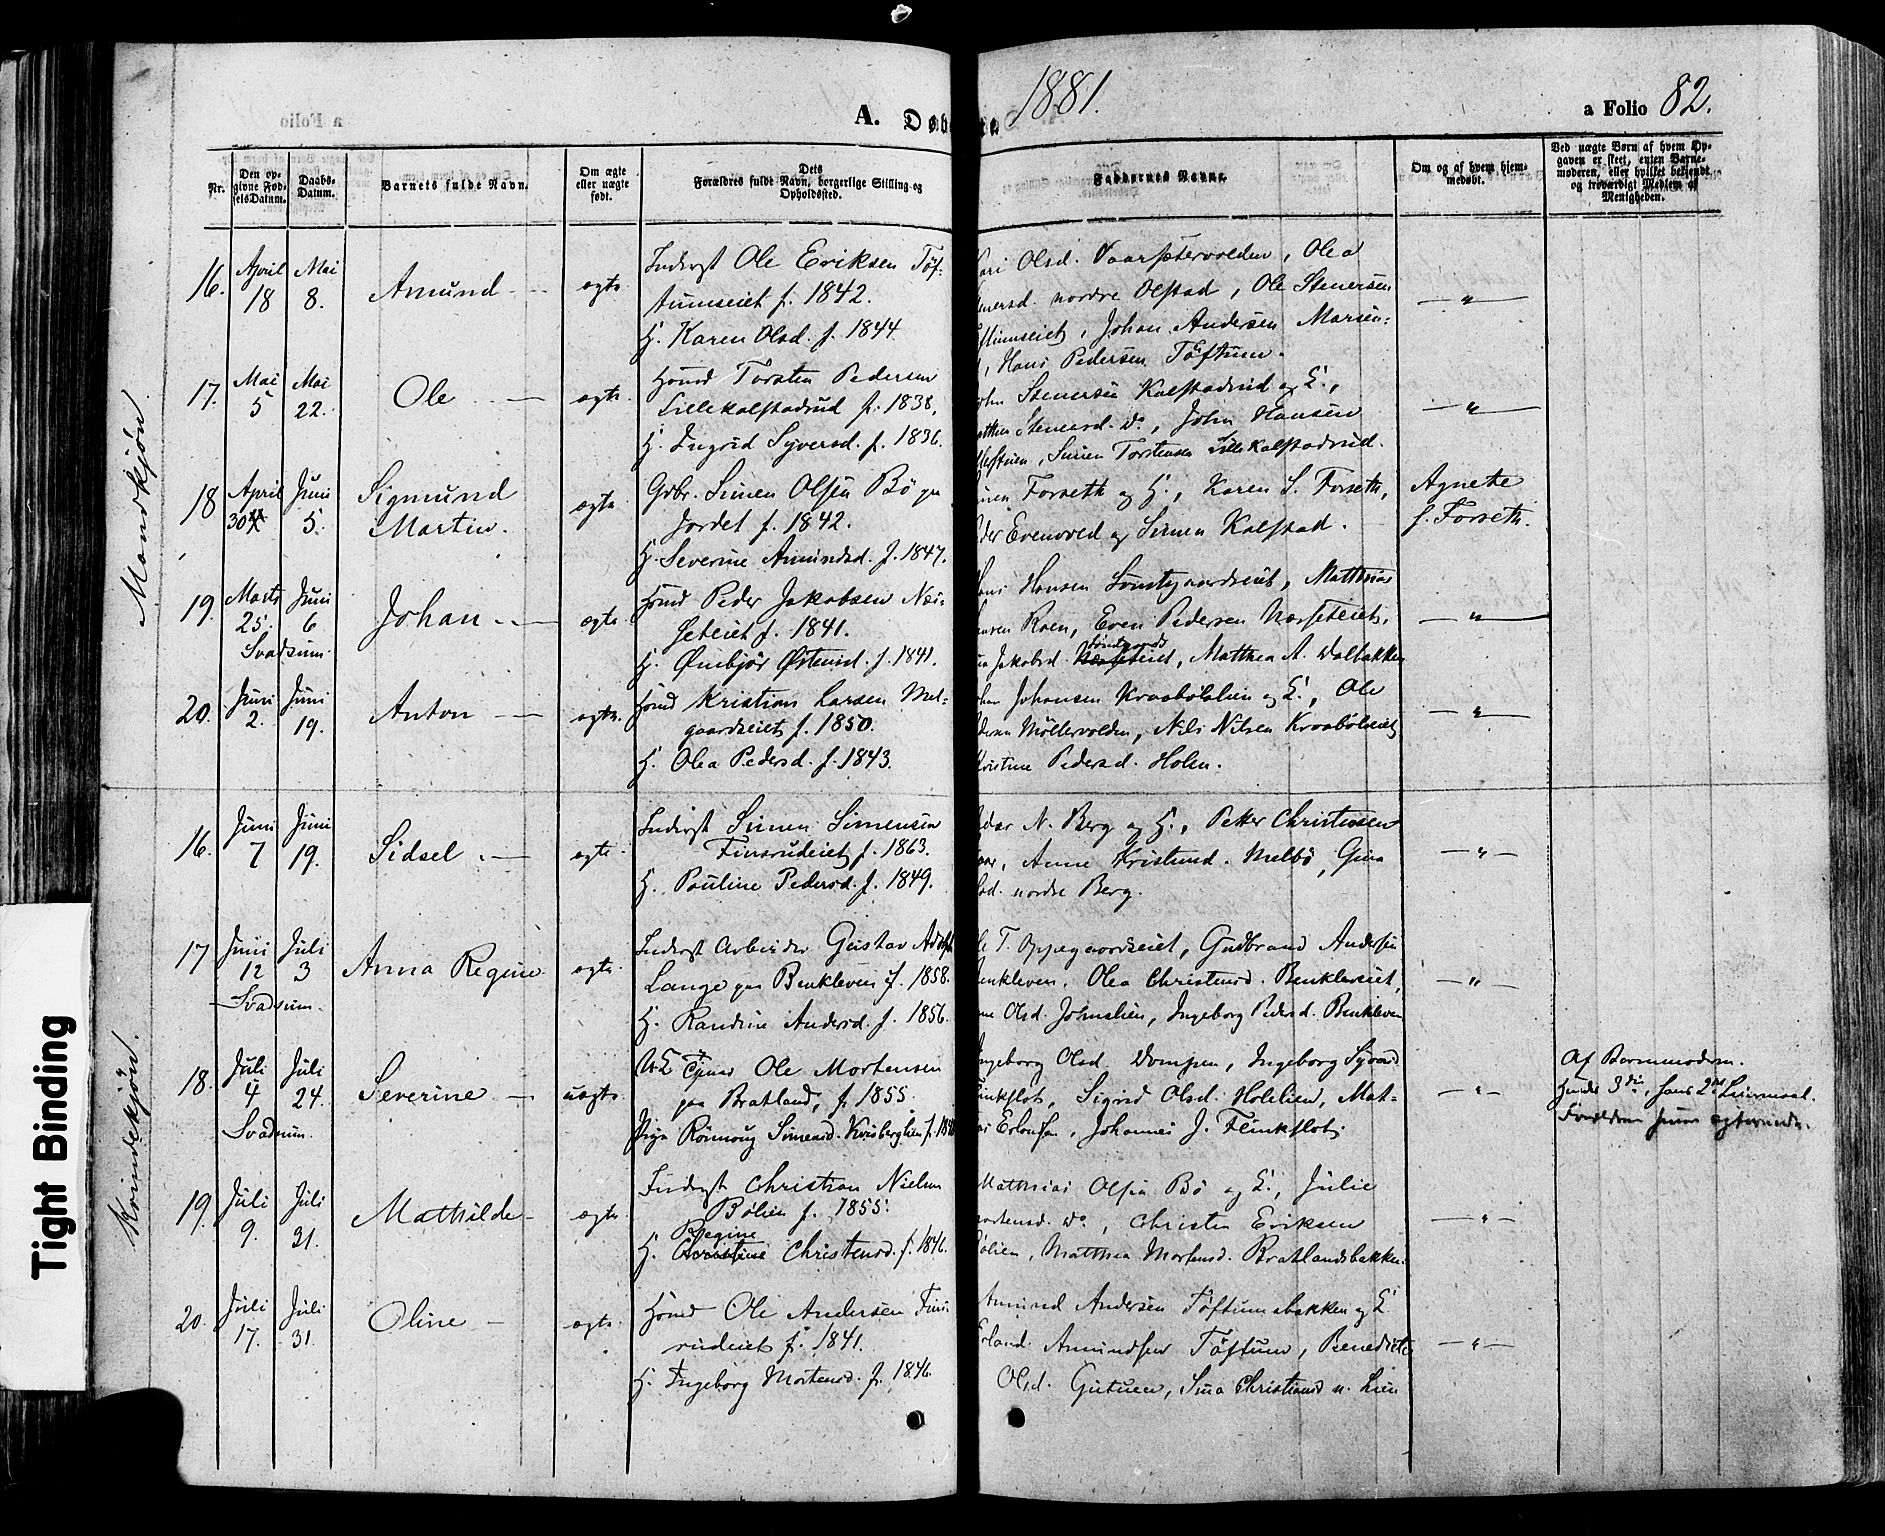 A. Døb
1881.
a Folio 82.
Nr.
Den op-
givne Fød-
selsDatum.
Daabs-
Datum.
Barnets fulde Navn.
Om ægte
eller uægte
født.
Dets
Forældres fulde Navn, borgerlige Stilling og
Opholdssted.
Faddernes Navne.
Om og af hvem hjem-
medøbt.
Ved uægte Børn af hvem Op-
gaven er skeet, enten Barne-
moderen, eller hvilket bekjendt
og troværdigt Medlem af
Menigheden.
Mandkjøn.
16. April 18 Mai 8. Amund ægte Inderst Ole Eriksen Töf-
tumseiet f. 1842.
H. Karen Olsd. f. 1844.
Kari Olsd. Vaarsætervolden, Olea
Stenersd. nordre Olstad, Ole Stenersen
Johan Andersen
Hans Pedersen Töftum.
17. Mai 5 Mai 22. Ole ægte Husmd Torsten Pedersen
Lillekalstadrud f. 1838,
H. Ingrid Syversd. f. 1836.
John Stenersen Kalstadrud og H.,
Stenersd. do, John Hansen
Simen Torstensen Lillekalstadrud.
18 April 30 Juni 5. Sigmund
Martin. ægte Gdbr. Simen Olsen Bö paa
Jordet f. 1842.
H. Severine Amundsd. f. 1847.
Simen Forseth og H., Karen S. Forseth,
Peder Evenvold og Simen Kalstad.
Agnete
S. Forseth.
19. Marts 25. Juni 6 Johan ægte Husmd Peder Jakobsen Næs-
seteiet f. 1841.
Svadsum.
H. Ømbjör Østensd. f. 1841.
Hans Hansen Matthias
Hansen Roen, Even Pedersen Næsseteiet,
Jakobsd. Matthea A. Dalbakken
20. Juni 2. Juni 19. Anton ægte Husmd Kristian Larsen Mel-
gaardseiet f. 1850.
H. Olea Pedersd. f. 1843.
Johan Johansen Kraabölslien og H., Ole
Pedersen Möllervolden, Nils Nilsen Kraabölseiet
Kristine Pedersd. Holen.
Kvindekjøn.
16. Juni 7 Juni 19. Sidsel ægte Inderst Simen Simensen
Finsrudeiet f. 1863.
H. Pauline Pedersd. f. 1849.
Peder N. Berg og H., Petter Christiansen
Anne Kristensd. Melbö, Gina
Olsd. nordre Berg.
17 Juni 12 Juli 3 Anna Regine ægte Inderst Arbeider Gustav Adolf
Lange paa Benkleven f. 1858.
Svadsum.
H. Randine Andersd. f. 1856.
Ole T. Oppegaardseiet, Gudbrand Andersen
Benkleven, Olea Christensd. Benklevseiet,
Olsd. Johnslien, Ingeborg Pedersd. Benkleven
18. Juli 4 Juli 24. Severine uægte Ole Mortensen
paa Bratland, f. 1855.
Svadsum.
Pige Rönnoug Simensd. Kvisberglien f.
Ingeborg Olsd. Dompen, Ingeborg Syversd
Finkflot, Sigrid Olsd. Holelien, Mat-
Erlandsen, Johannes J. Finkflot
Af Barnemoderen.
Hendes 3die, hans 2det Leiermaal.
Forældrene senere ægteviede.
19. Juli 9. Juli 31. Mathilde ægte Inderst Christian Nielsen
Bölien f. 1855.
Regine
H. Christine Christensd. f. 1846.
Matthias Olsen Bö og H., Julie
Mortensd. do, Christen Eriksen
Bölien, Matthea Mortensd. Bratlandsbakken.
20. Juli 17. Juli 31. Oline ægte Husmd Ole Andersen Fins-
rudeiet f. 1841.
H. Ingeborg Mortensd. f. 1846.
Amund Andersen Töftumsbakken og H.
Erland Amundsen Töftum, Benedicte
Olsd. Gutuen, Sina Christiansd n. Lien
Tight Binding